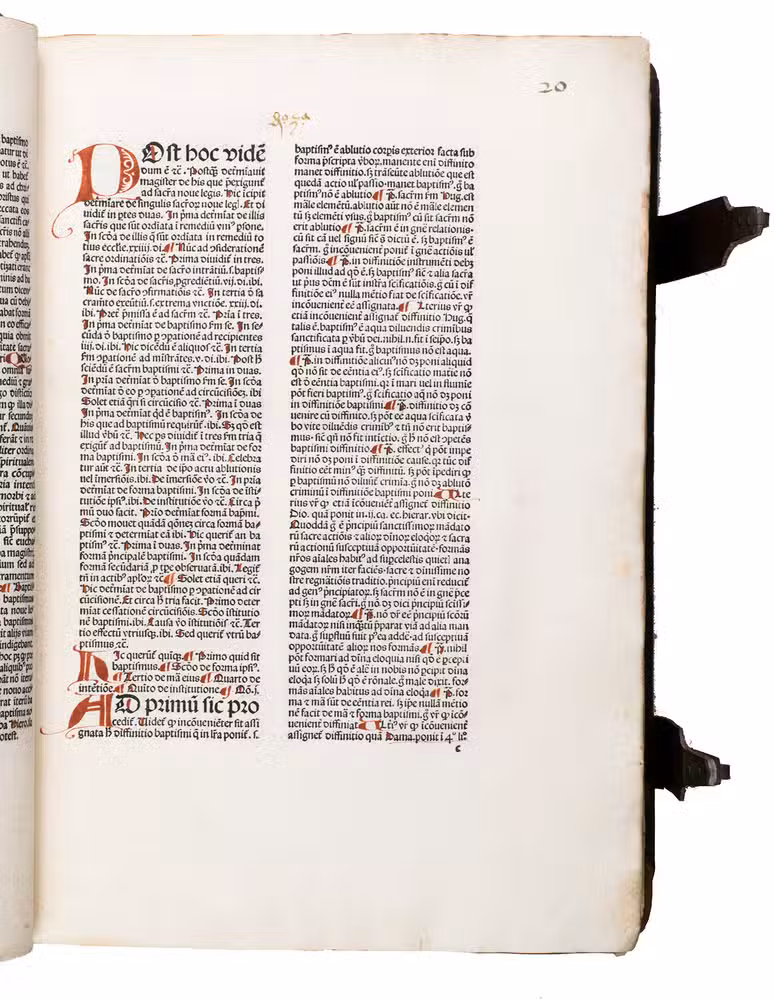 20
POst hoc vidē
dum ē ⁊č. Postqȝ det̄miauit
magister de his que p̄erigunt̄
ad sacr̄a noue legis. Hic īcipit
det̄miare de singulis sacr̄oꝝ noue legȷ. Et di
uidit̄ in ptes duas. In p̄ma det̄miat de illis
sacr̄is que sūt ordiata ī remediū vniꝰ p̄sone.
In sc̄da de illis q̄ sūt ordiata in remediū to
tius eccl̄e. xxiiij. di. Nūc ad ɔsiderationē
sacre ordinatiōis ⁊č. Prima diuidit̄ in tres.
In p̄ma det̄mīat de sacr̄o intrātiū. s. baptis
mo. In sc̄da de sacr̄is ꝓgrediētiū. vij. di. ibi.
Nūc de sacr̄o ɔfirmatiōis ⁊č. In tertia ð sa
cram̄to exeūtiū. s. extrema vnctiōe. xxiij. di.
ibi. Pret̄ p̄missa ē ad sacr̄a ⁊č. Pria ī tres.
In p̄ma det̄miat de baptismo s̄m se. In se
cūda ð baptismo ꝑ ɔpationē ad recipientes
iiij. di. ibi. Hic dicēdū ē aliquos ⁊č. In tertia
s̄m ɔpationē ad mīstrātes. v. di. ibi. Post h̄
sciēdū ē sacr̄m baptismi ⁊č. Prima in duas.
In pria det̄miat ð baptismo s̄m se. In sc̄da
det̄miat ð eo ꝑ ɔpationē ad circūcisiōeȝ. ibi
Solet etiā q̄ri si circūcisio ⁊č. Prima ī duas
In p̄ma det̄miat qd̄ ē baptismꝰ. In sc̄da de
his que ad baptismū requirūt̄. ibi. Sȝ qō est
illud v̄bū ⁊č. Hec ps diuidit̄ ī tres s̄m tria q̄
exigūt̄ ad baptismū. In p̄ma det̄miat de for
ma baptismi. In sc̄da ð m̄a eiꝰ. ibi. Celebra
tur aūt ⁊č. In tertia de ip̄o actu ablutionis
vel īmersiōis. ibi. De īmersiōe v̄o ⁊č. In pria
det̄miat de forma baptismi. In sc̄da de īsti
tutiōe ip̄siꝰ. ibi. De institutiōe v̄o ⁊č. Circa p̄
mū duo facit. Prīo det̄miat formā bap̄mi.
Scd̄o mouet quādā q̄onēȝ circa formā ba
ptismi ⁊ determīat eā ibi. Hic querit̄ an ba
ptismꝰ ⁊č. Prima ī duas. In p̄ma det̄minat
formā p̄ncipalē baptismi. In sc̄da quādam
formā secūdariā ꝓ tp̄e obseruatā. ibi. Legit̄
tn̄ in actibꝰ ap̄loꝝ ⁊č. Solet etiā queri ⁊č.
Hic det̄miat de baptismo ꝑ ɔpationē ad cir
cūcisionē. Et circa h̄ tria facit. Primo deter
miat cessationē circūcisiōis. Scd̄o īstitutio
nē baptismi. ibi. Causa v̄o īstitutiōis ⁊č. Ter
tio effectū vtriusqȝ. ibi. Sed querit̄ vtrū ba
ptismus ⁊č.
HIc querūt̄ quīqȝ. Primo quid sit
baptismus. Scd̄o de forma ip̄siꝰ.
Tertio de m̄a eius. Quarto de
intētiōe. Quīto de institutione. Qō. j.
AD primū sic pro
cedit̄. Uidet̄ ꝙ incōueniēter sit assi
gnata h̄ diffinitio baptismi q̄ in lr̄a ponit̄. s.
baptismꝰ ē ablutio corp̄is exterior facta sub
forma p̄scripta v̄boꝝ. manente eni diffinito
manet diffinitio. sȝ trāseūte ablutiōe que est
quedā actio ul̓ passio manet baptismꝰ. g̊ ba
ptismꝰ nō ē ablutio. P̄. sacr̄m s̄m Hug. est
māle elemētū. ablutio aūt nō ē māle elemen
tū sȝ elemēti vsus. g̊ baptismꝰ cū sit sacr̄m nō
erit ablutio. P̄. sacr̄m ē in gn̄e relationis.
cū sit cā uel signū sic̄ q̄ dictū ē. sȝ baptismꝰ ē
sacr̄m. g̊ incōuenient̄ ponit̄ ī gn̄e actiōis ul̓
passiōis. P̄. in diffinitiōe instrumēti debȝ
poni illud ad qō ē. sȝ baptismꝰ sic̄ ⁊ alia sacr̄a
ut ptȝ dēm ē sūt instr̄a sc̄ificatiōis. g̊ cū ī dif
finitiōe eiꝰ nulla mētio fiat de sc̄ificatiōe. vr̄
incōuenient̄ eē assignata. Ulterius vr̄ ꝙ
etiā incōuenient̄ assignet̄ diffinitio Hug. q̄
talis ē. baptismꝰ ē aqua diluendis crimībus
sanctificata ꝑ v̄bū dei. nihil. n. fit ī seip̄o. sȝ ba
ptismus ī aqua fit. g̊ baptismus nō est aqua.
P̄. in diffinitiōe aliciꝰ nō dȝ poni aliquid
qō nō sit de eēntia eiꝰ. sȝ sc̄ificatio materie nō
est ð eēntia baptismi. qꝛ ī mari uel in flumīe
pōt fieri baptismꝰ. g̊ sc̄ificatio aq̄ nō dȝ poni
in diffinitiōe baptismi. P̄. diffinitio dȝ cō
uenire cū diffinito. sȝ pōt eē aqua sc̄ificata v̄
bo vite diluēdis crimībꝰ ⁊ tn̄ nō erit baptis
mus: sic̄ qn̄ nō fit intīctio. g̊ h̄ nō est ɔpetēs
baptismi diffinitio. P̄. effectꝰ q̄ pōt impe
diri nō dȝ poni ī diffinitiōe cause. qꝛ tūc dif
finitio eēt minꝰ qȝ diffinitū. sȝ pōt īpediri qn̄
ꝑ baptismū nō diluūt̄ crimīa. g̊ nō dȝ ablutio
criminū ī diffinitiōe baptismi poni. Ulte
rius vr̄ ꝙ etiā īcōuenient̄ assignet̄ diffinitio
Dio. quā ponit in. ij. ca. ec. hierar. vbi dicit.
Quoddā g̊ ē p̄ncipiū sanctissimoꝝ mādato
rū sacre actiōis ⁊ alioꝝ dīnoꝝ eloqioꝝ ⁊ sacra
rū actionū susceptiua opportūitatē: formās
nr̄os aīales habitꝰ ad supcelestis quietȷ ana
gogem nr̄m iter faciēs: sacre ⁊ dīnissime no
stre regn̄atiōis traditio. p̄ncipiū eni reducit̄
ad genꝰ p̄ncipiatoꝝ. sȝ sacr̄m nō ē in gn̄e p̄ce
pti sȝ in gn̄e sacr̄i. g̊ nō dȝ dici p̄ncipiū sc̄issi
moꝝ mādatoꝝ. P̄. nō eēt p̄ncipiū sc̄oꝝ
mādatoꝝ nisi inqȝtū p̄parat viā ad alia man
data. g̊ supfluū fuit pꝰea addē: ad susceptiuā
opportūitatē alioꝝ nos formās. P̄. nihil
pōt formari ad dīna eloquia nisi qō ē p̄cepti
uū eoꝝ. sȝ h̄ qō ē aīale in nobis nō p̄cipit dīna
eloqa sȝ solū h̄ qō ē rōnale. g̊ male dixit. for
mās aīales habitus ad dīna eloqa. P̄. for
ma ⁊ m̄a sūt de eēntia rei. sȝ ip̄e nullā mētio
nē facit de m̄a ⁊ forma baptismi. g̊ vr̄ ꝙ icō
uenient̄ diffiniat. Ulteriꝰ vr̄ ꝙ īcōuenient̄
assignet̄ diffinitio quā Dama. ponit ī 4º li.
c